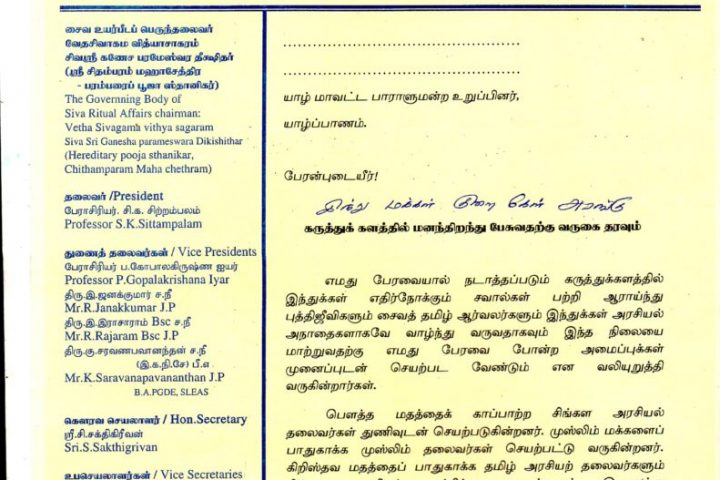 சைவ உயர்பீடப் பெருந்தலைவர்
வேதசிவாகம வித்யாசாகரம்
சிவஸ்ரீ கணேச பரமேஸ்வர தீக்ஷிதர்
(ஸ்ரீ சிதம்பரம் மஹாசேத்திர
- பரம்பரைப் பூஜா ஸ்தானிகர்)
The Governning Body of
Siva Ritual Affairs chairman:
Vetha Sivagama vithya sagaram
Siva Sri Ganesha parameswara Dikishithar
(Hereditary pooja sthanikar,
Chithamparam Maha chethram)
தலைவர் /President
பேராசிரியர். சி.க. சிற்றம்பலம்
Professor S.K.Sittampalam
துணைத் தலைவர்கள் / Vice Presidents
பேராசிரியர் ப.கோபாலகிருஷ்ண ஐயர்
Professor P.Gopalakrishana Iyar
திரு.இ.ஜனக்குமார் ச.நீ
Mr.R.Janakkumar J.P
திரு.இ.இராசாராம் Bsc ச.நீ
Mr.R.Rajaram Bsc J.P
திரு.கு.சரவணபவானந்தன் ச.நீ
(இ.க.நி.சே) பீ.எ
Mr.K.Saravanapavananthan J.P
B.A.PGDE, SLEAS
கௌரவ செயலாளர் / Hon.Secretary
ஸ்ரீ.சி.சக்திகிரீவன்
Sri.S.Sakthigrivan
உபசெயலாளர்கள் / Vice Secretaries
யாழ் மாவட்ட பாராளுமன்ற உறுப்பினர்,
யாழ்ப்பாணம்.
பேரன்புடையீர்!
இந்து மக்கள் குறை கேள் அரங்கு
கருத்துக் களத்தில் மனந்திறந்து பேசுவதற்கு வருகை தரவும்
எமது பேரவையால் நடாத்தப்படும் கருத்துக்களத்தில்
இந்துக்கள் எதிர்நோக்கும் சவால்கள் பற்றி ஆராய்ந்து
புத்திஜீவிகளும் சைவத் தமிழ் ஆர்வலர்களும் இந்துக்கள் அரசியல்
அநாதைகளாகவே வாழ்ந்து வருவதாகவும் இந்த நிலையை
மாற்றுவதற்கு எமது பேரவை போன்ற அமைப்புக்கள்
முனைப்புடன் செயற்பட வேண்டும் என வலியுறுத்தி
வருகின்றார்கள்.
பௌத்த மதத்தைக் காப்பாற்ற சிங்கள அரசியல்
தலைவர்கள் துணிவுடன் செயற்படுகின்றனர். முஸ்லிம் மக்களைப்
பாதுகாக்க முஸ்லிம் தலைவர்கள் செயற்பட்டு வருகின்றனர்.
கிறிஸ்தவ மதத்தைப் பாதுகாக்க தமிழ் அரசியற் தலைவர்களும்